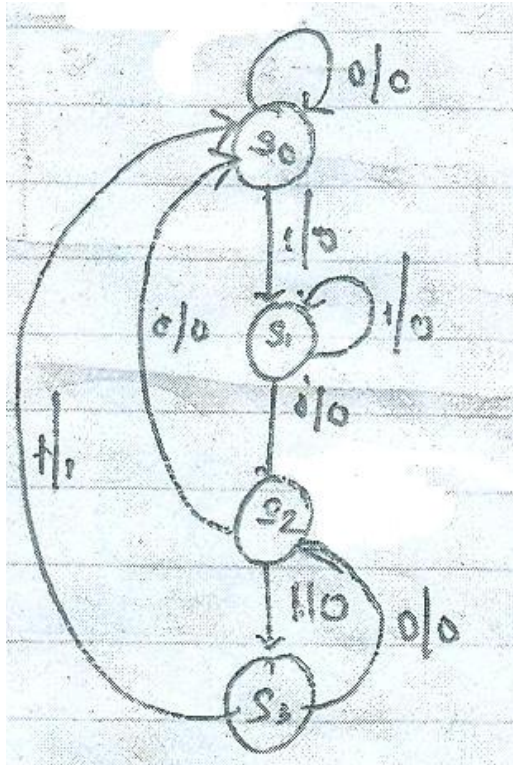 0/0
S0
1/0
S1
1/0
0/0
0/0
1/1
S2
1/0
0/0
S3